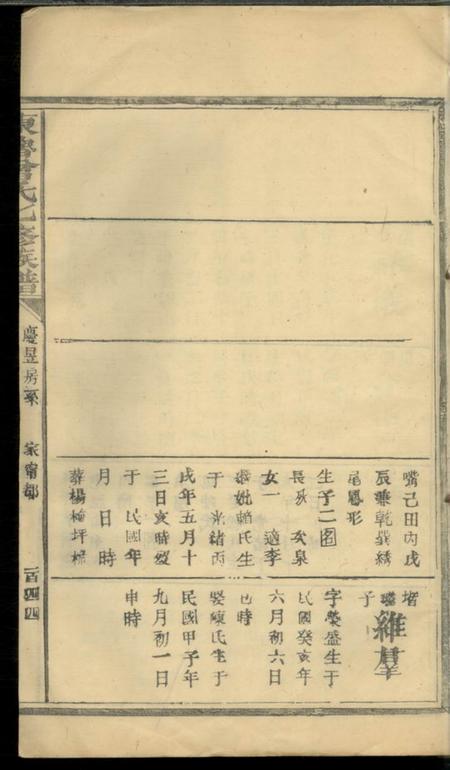 東魯曾氏七修族譜
慶昱房系
寧都
一百四四
嘴己田內戌
辰兼乾巽綉
毛形
生子二
長 泉
女一 適李
妣賴氏生
于光緒丙
戌年五月十
三日亥時歿
于 民國 年
月 日時
葬楊梅坪
子
維羣
字榮盛生于
民國癸亥年
六月初六日
巳時
娶陳氏生于
民國甲子年
九月初一日
申時